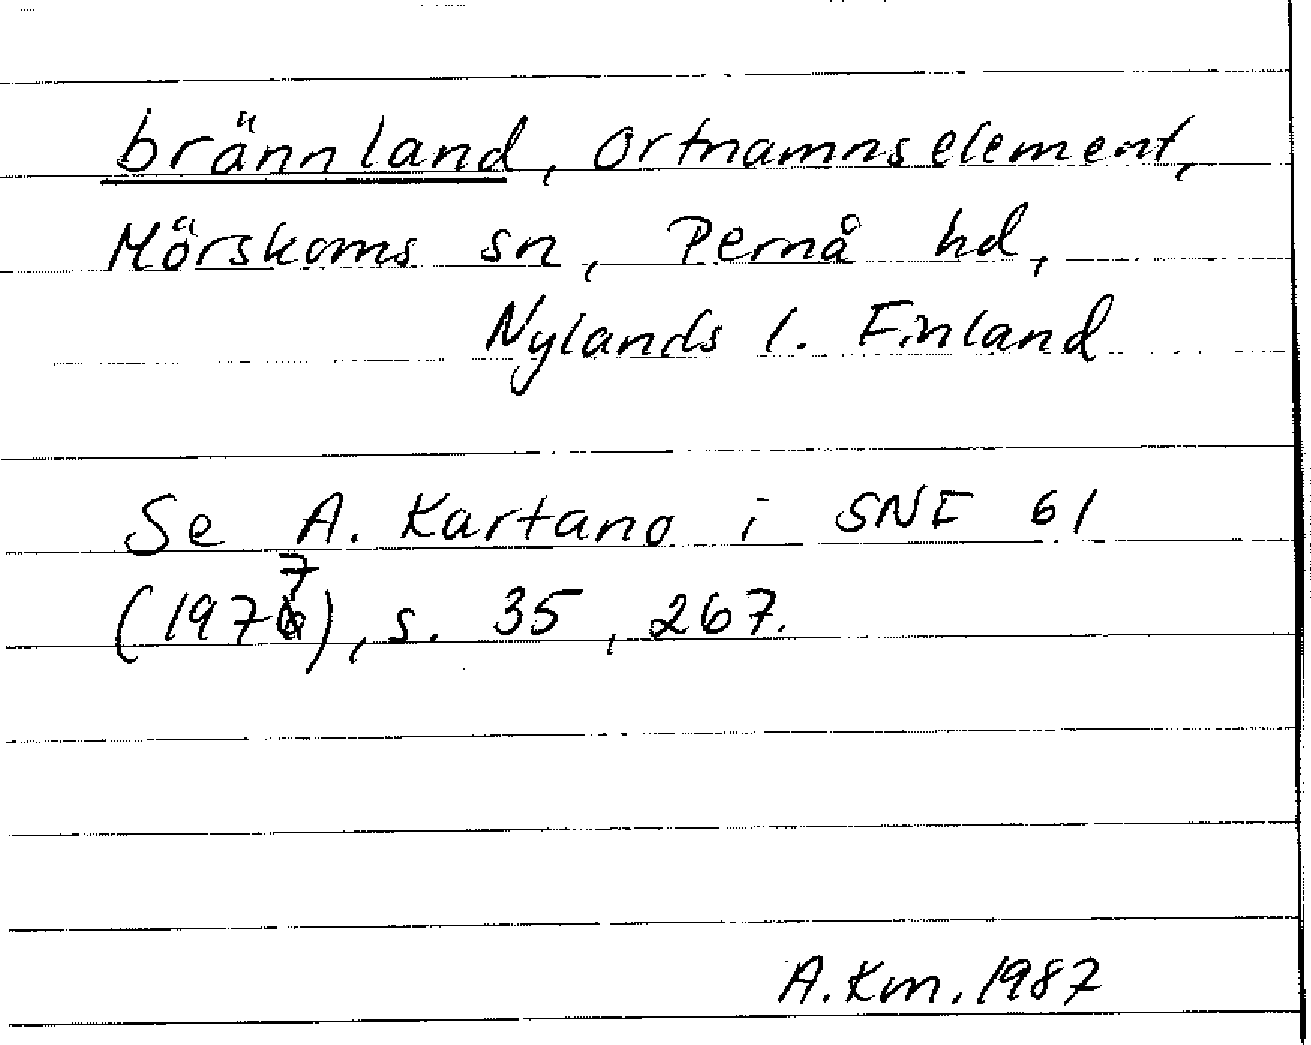 brännland, ortnamnselement,
Mörskoms sn, Pernå hd,
Nylands l. Finland
Se A. Kartano i SNF 61
(1977), s. 35, 267.
A.Km. 1987